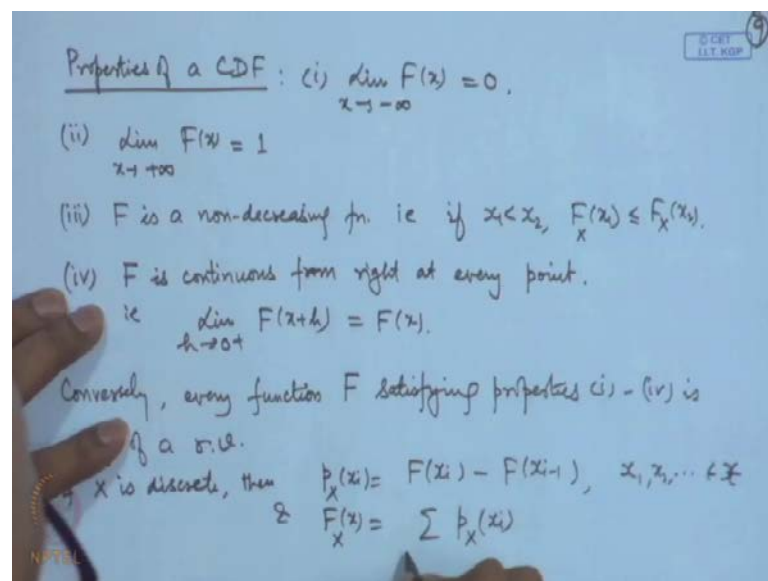 9
© CET
I.I.T. KGP
Properties of a CDF : (i) lim F(x) = 0.
x→ -∞
(ii) lim F(x) = 1
x→ +∞
(iii) F is a non-decreasing fn. ie if x₁<x₂, F_X(x₁) ≤ F_X(x₂).
(iv) F is continuous from right at every point.
ie lim F(x+h) = F(x).
h→0+
Conversely, every function F satisfying properties (i) - (iv) is
of a r.v.
X is discrete, then p_X(xi) = F(xi) - F(xi-1), x₁, x₂, ...
& F_X(x) = Σ p_X(xi)
NPTEL